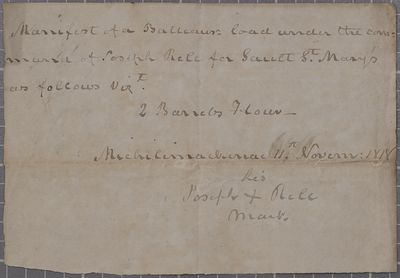 Manifest of a Batteaux load under the com-
mand of Joseph Rele for Sault St. Mary's
as follows Vizt.
2 Barrels Flour —
Michilimackinac 11th Novem: 1818
his
Joseph + Rele
Mark.